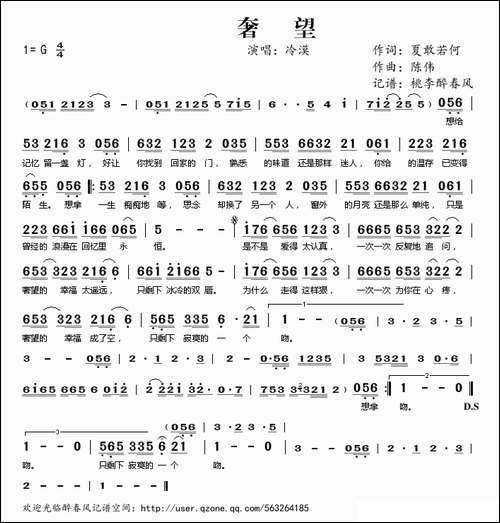 奢 望
1= G 4/4 演唱：冷漠 作词：夏敢若何
作曲：陈伟
记谱：桃李醉春风
(051 2123 3 - | 051 2125 5 7i5 | 6 · · 5 4 i | 7i2 25 5) 056 |
想给
53 216 3 056 | 632 123 2 035 | 553 6632 21 061 | 223 216 3 |
记忆 留一盏 灯，好让 你找到 回家的 门，熟悉 的味道 还是那样 迷人，你给 的温存 已变得
655 056 ‖: 53 216 3 056 | 632 123 2 035 | 553 6632 21 061 |
陌生。想拿 一生 痴痴地 等，思念 却换了 另一个 人，窗外 的月亮 还是那么 单纯，只是
223 66i i66 065 | 5 - - - | i76 656 123 3 | 6665 653 322 2 |
曾经的 浪漫在 回忆里 永 恒。 是不是 爱得 太认真， 一次一次 反复地 追 问，
653 323 2216 6 | 66i 2i66 5 - | i76 656 123 3 | 6665 653 322 2 |
奢望的 幸福 太遥远， 只剩下 冰冷的双 眉。 为什么 走得 这样狠， 一次一次 为你在 心 疼，
653 323 2216 · | 565 335 6 · 21 | 1 - - (056 | 3 · 2 3 · 5 |
奢望的 幸福 成了空， 只剩下 寂寞的 一 个 吻。
3 - - 056 | 2 · 1 2 · 3 | 2 - 0·56 1235 | 3 5321 3 0·6 |
6i65 665 6 0i2 | 2 222i 32 · 0 · 7 | 753 32321 2) 056 :‖ 1 - - 0 |
想拿 吻。 D.S
(056 | 3 · 2 3 · 5 |
1 - - 0 ‖ 565 335 6 · 21 | 1 - - 0 | 3 - - 056 | 2 · 1 2 · 3 |
吻。 只剩下 寂寞的 一 个 吻。
2 - - - | 1 - - - ‖
欢迎光临醉春风记谱空间：http://user.qzone.qq.com/563264185